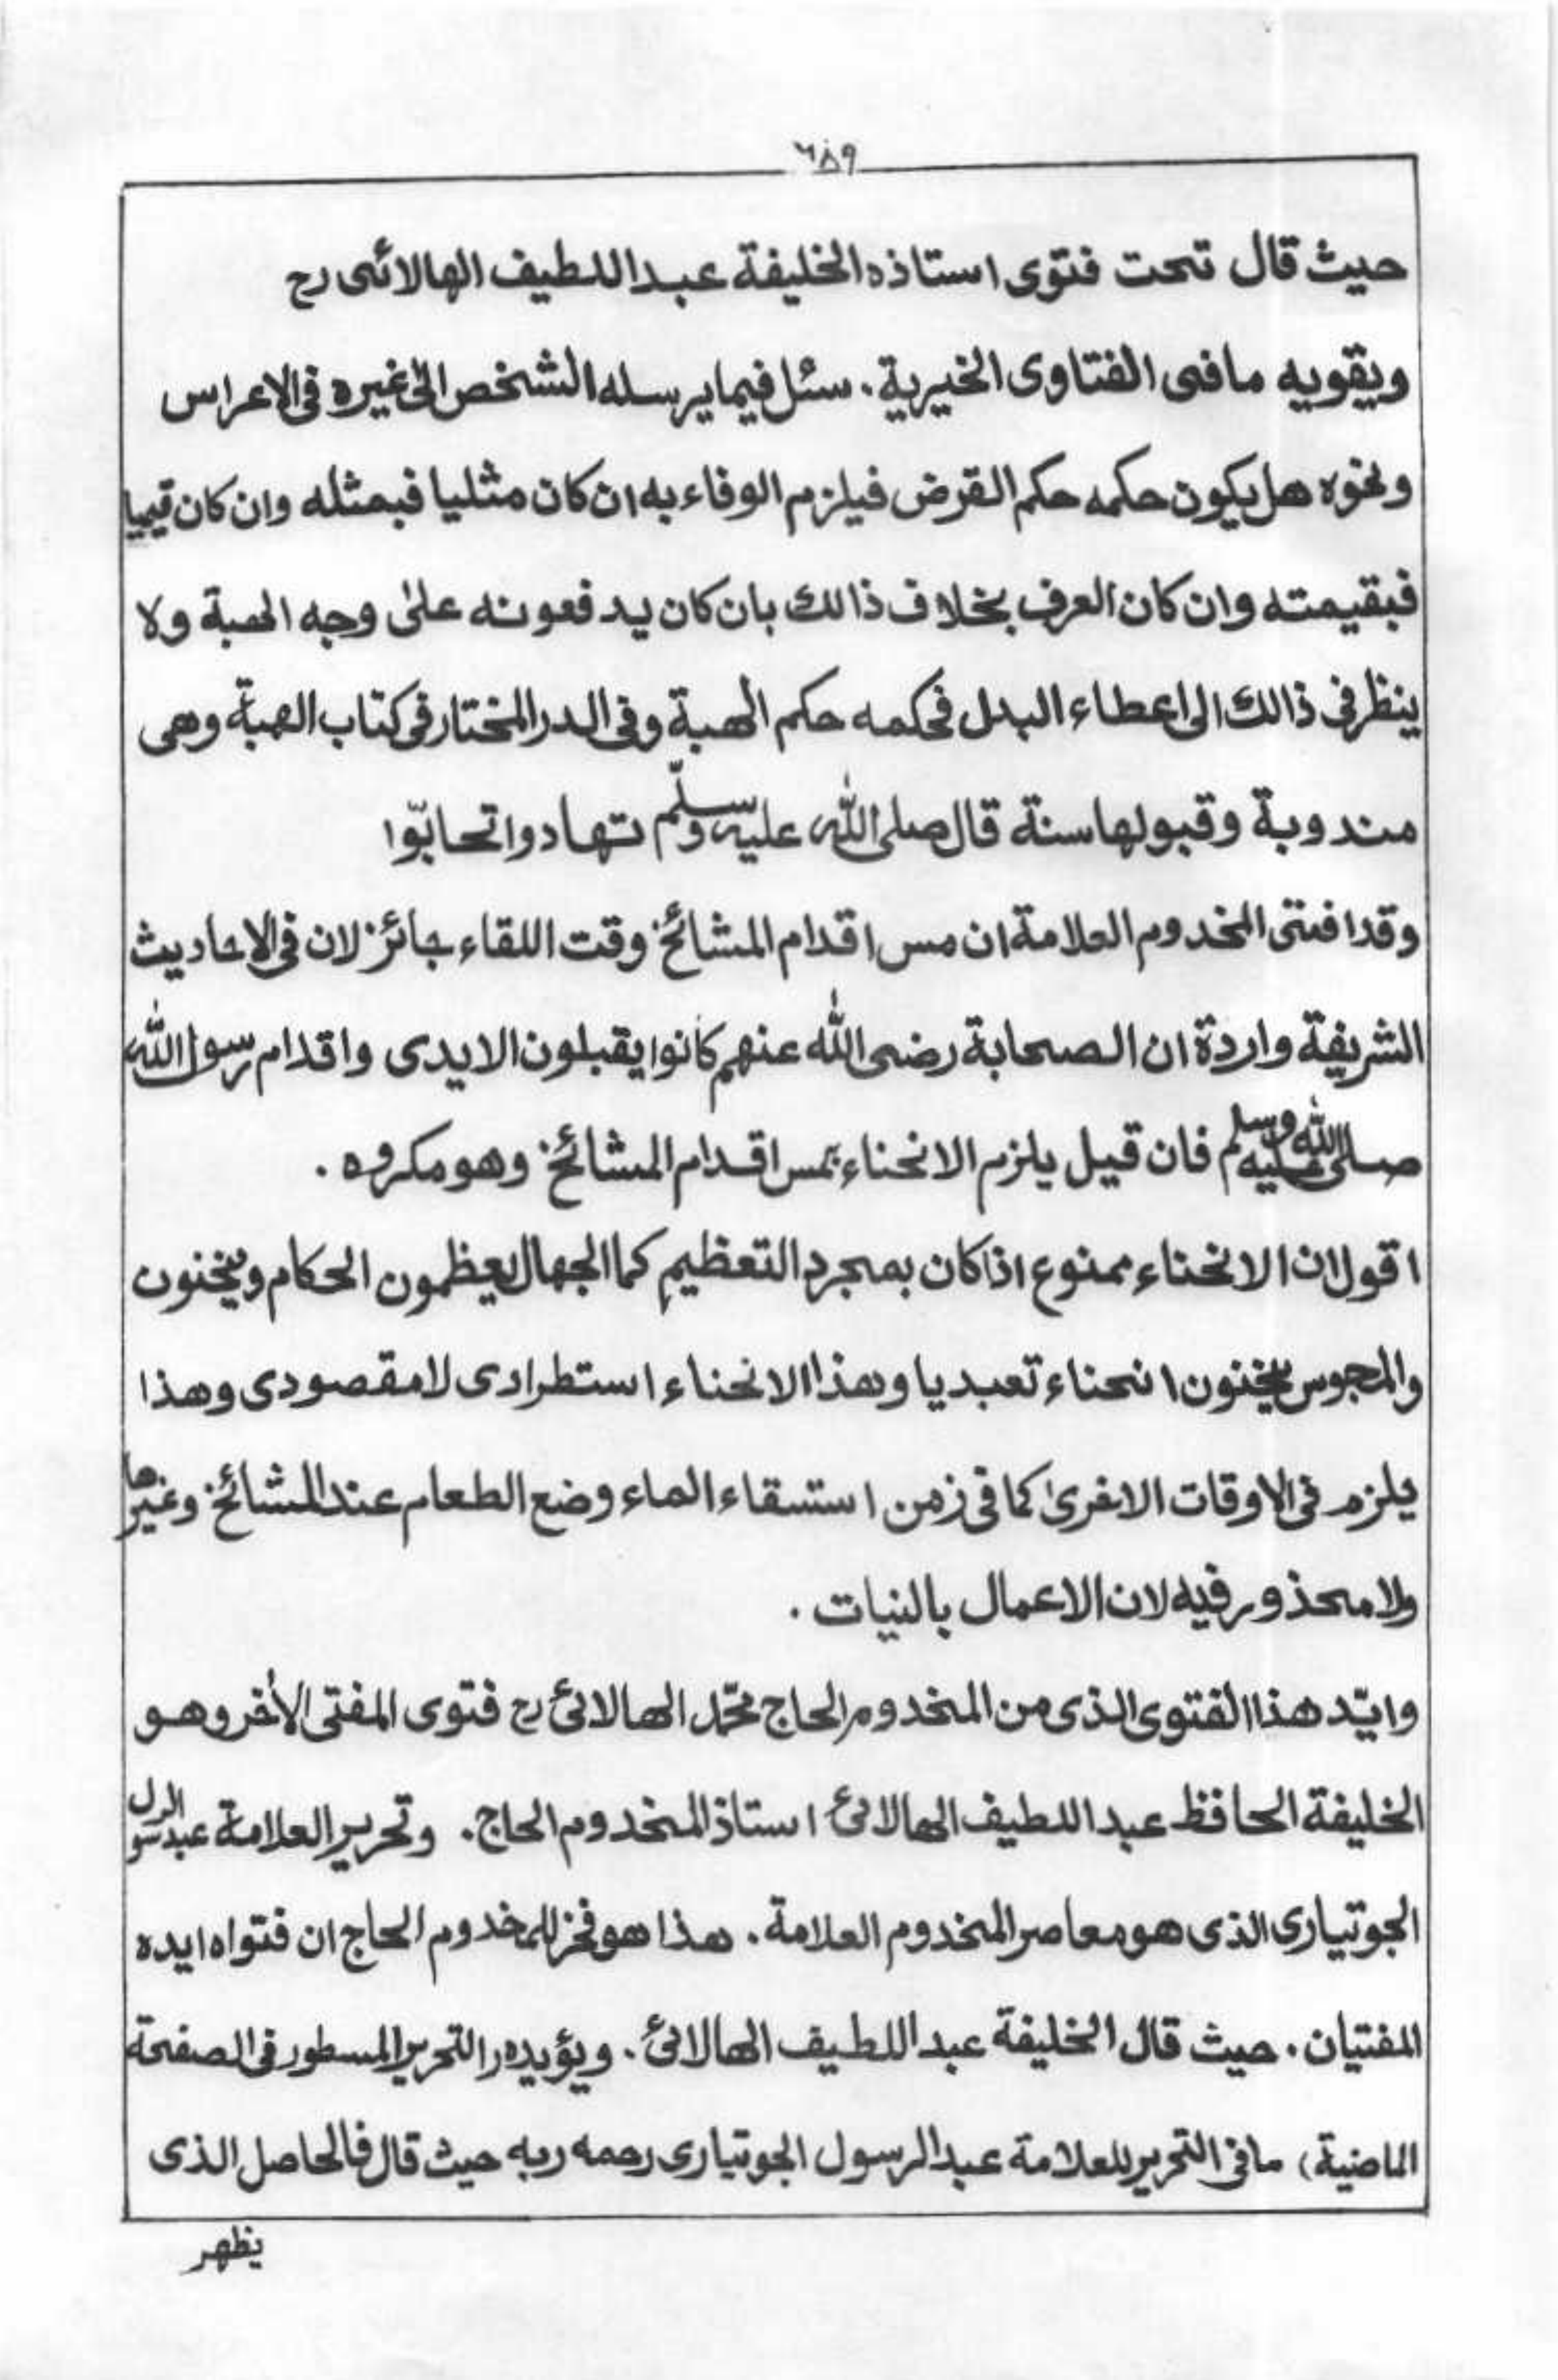 ٦٨٩
حيث قال تحت فتوى استاذه الخليفة عبد اللطيف الهالائى رح
ويقويه مافى الفتاوى الخيرية. سئل فيما يرسله الشخص الى غيره فى الاعراس
ونحوه هل يكون حكمه حكم القرض فيلزم الوفاء به ان كان مثليا فبمثله وان كان قيميا
فبقيمته وان كان العرف بخلاف ذالك بان كان يدفعونه على وجه الهبة ولا
ينظر فى ذالك الى اعطاء البدل فحكمه حكم الهبة وفى الدر المختار فى كتاب الهبة وهى
مندوبة وقبولها سنة قال صلى الله عليه وسلّم تهادوا تحابّوا
وقد افتى المخدوم العلامة ان مس اقدام المشائخ وقت اللقاء جائز لان فى الاحاديث
الشريفة واردة ان الصحابة رضى الله عنهم كانوا يقبلون الايدى واقدام رسول الله
صلى الله عليه وسلم فان قيل يلزم الانحناء بمس اقدام المشائخ وهو مكروه.
اقول ان الانحناء ممنوع اذا كان بمجرد التعظيم كما الجهال يعظمون الحكام وينحنون
والمجوس ينحنون انحناء تعبديا وهذا الانحناء استطرادى لا مقصودى وهذا
يلزم فى الاوقات الاخرىٰ كما فى زمن استسقاء الماء وضع الطعام عند المشائخ وغيرها
ولا محذور فيه لان الاعمال بالنيات.
وايّد هذا الفتوى الذى من المخدوم الحاج محمّد الهالائى رح فتوى المفتى الأخر وهو
الخليفة الحافظ عبد اللطيف الهالائى استاذ المخدوم الحاج. وتحرير العلامة عبد الرسول
الجوتيارى الذى هو معاصر المخدوم العلامة. هذا هو فخز للمخدوم الحاج ان فتواه ايده
المفتيان. حيث قال الخليفة عبد اللطيف الهالائى. ويؤيده (التحرير المسطور فى الصفحة
الماضية) مافى التحرير للعلامة عبد الرسول الجوتيارى رحمه ربه حيث قال فالحاصل الذى
يظهر